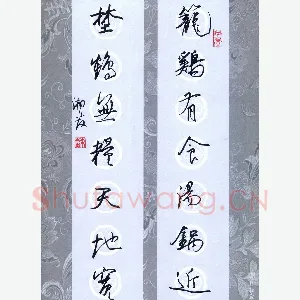 籠鷄有食湯鍋近
埜鶴無糧天地寬
湘波
Shufawang.CN